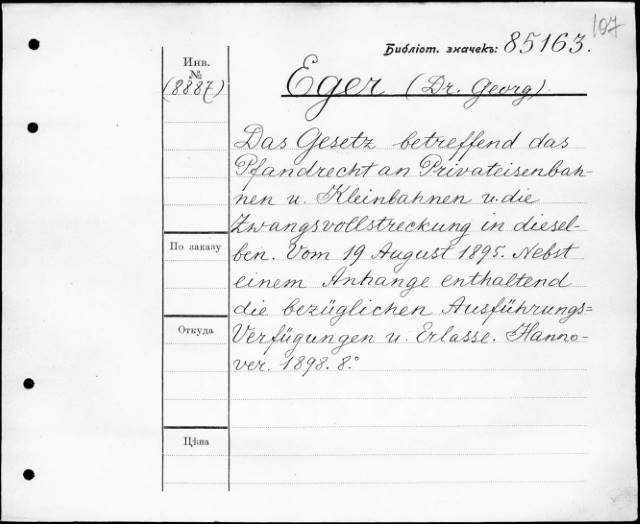 107
Библіот. значекъ: 85163.
Инв.
№
(8887)
Eger (Dr. Georg).
Das Gesetz betreffend das
Pfandrecht an Privateisenbah-
nen u. Kleinbahnen u. die
Zwangsvollstreckung in diesel-
По заказу
ben. Vom 19 August 1895. Nebst
einem Anhange enthaltend
die bezüglichen Ausführungs=
Откуда
Verfügungen u. Erlasse. Hanno-
ver. 1898. 8.°
Цѣна